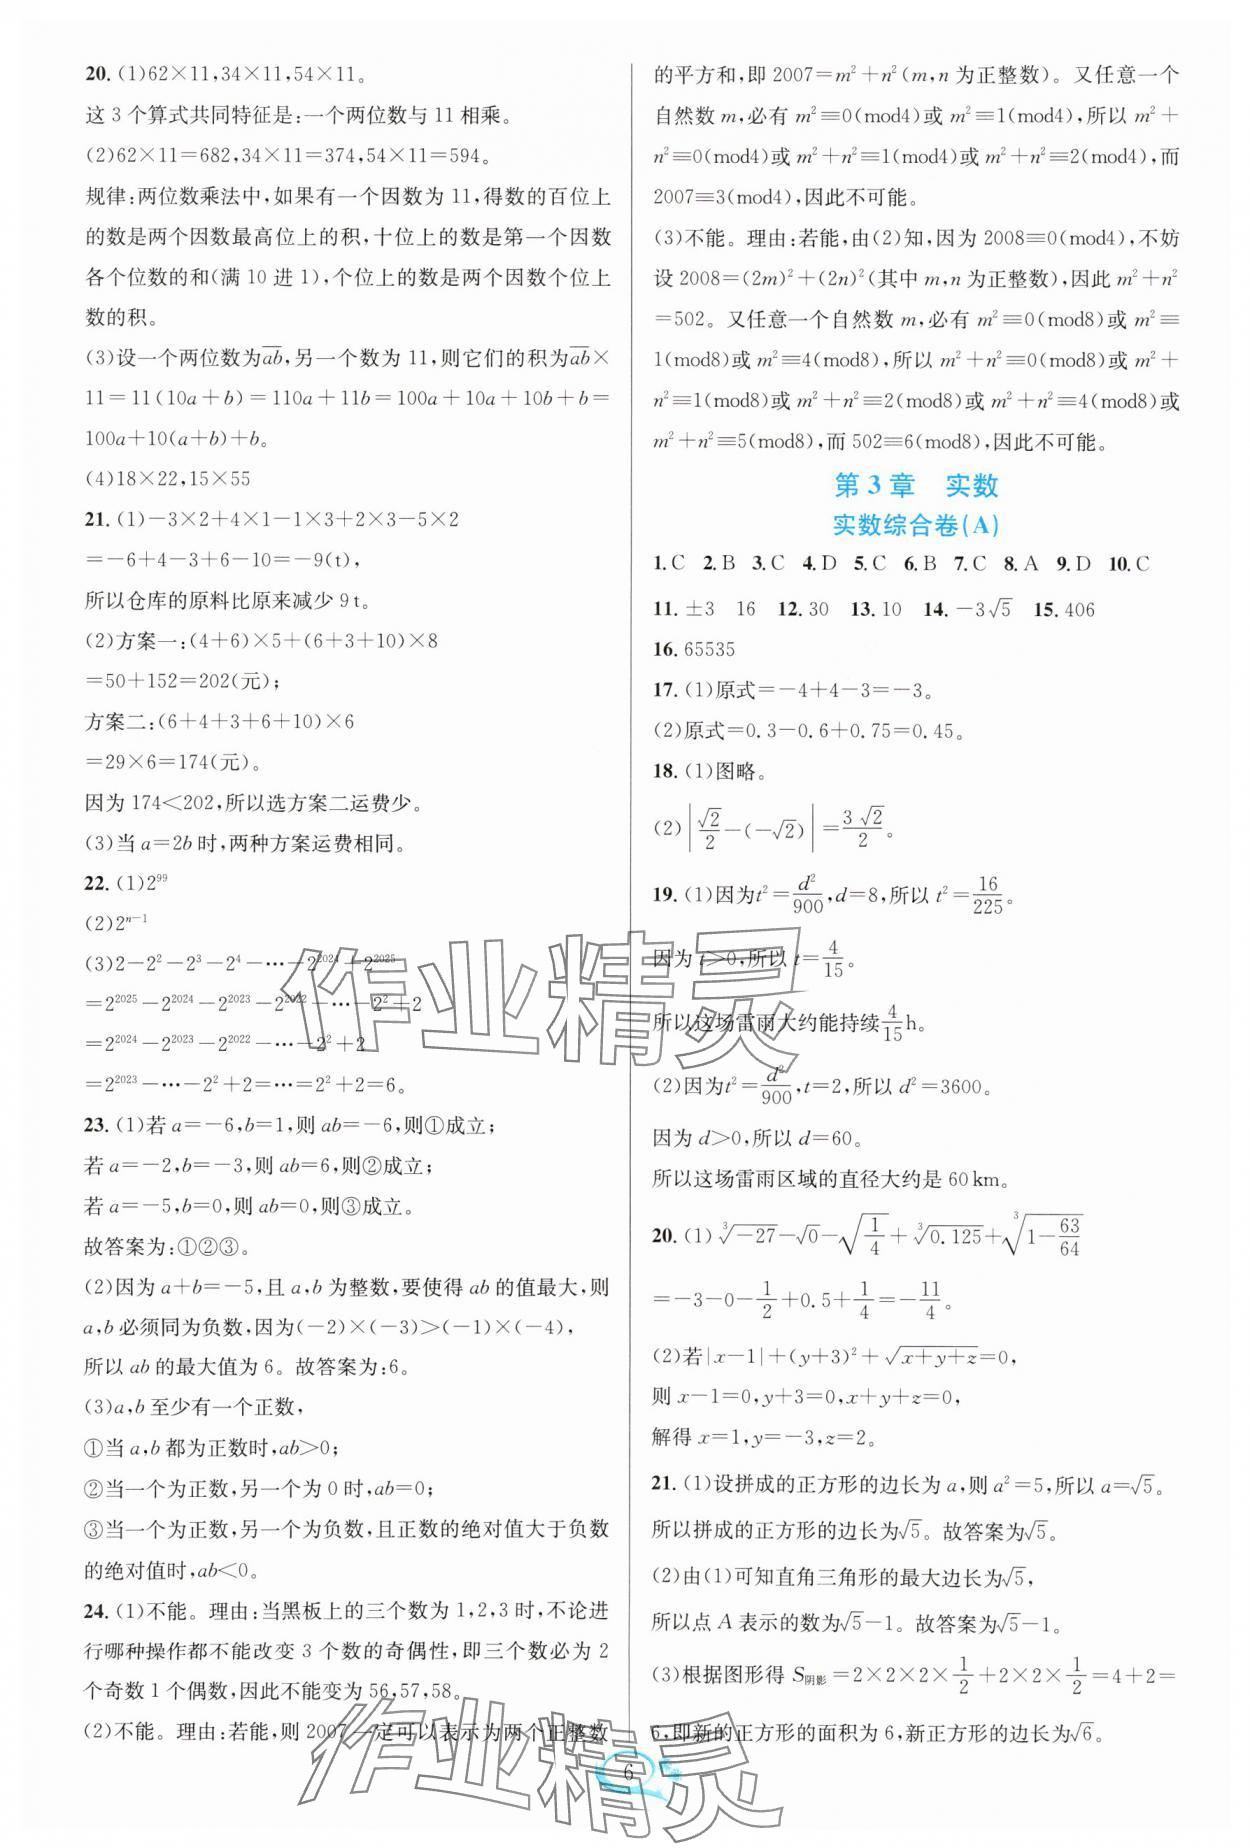 20. (1)62×11,34×11,54×11。
这 3 个算式共同特征是:一个两位数与 11 相乘。
(2)62×11=682,34×11=374,54×11=594。
规律:两位数乘法中,如果有一个因数为 11,得数的百位上
的数是两个因数最高位上的积,十位上的数是第一个因数
各个位数的和(满 10 进 1),个位上的数是两个因数个位上
数的积。
(3)设一个两位数为a̅b̅,另一个数为 11,则它们的积为a̅b̅×
11=11(10a+b)=110a+11b=100a+10a+10b+b=
100a+10(a+b)+b。
(4)18×22,15×55
21. (1)-3×2+4×1-1×3+2×3-5×2
=-6+4-3+6-10=-9(t),
所以仓库的原料比原来减少 9 t。
(2)方案一:(4+6)×5+(6+3+10)×8
=50+152=202(元);
方案二:(6+4+3+6+10)×6
=29×6=174(元)。
因为 174<202,所以选方案二运费少。
(3)当 a=2b 时,两种方案运费相同。
22. (1)2⁹⁹
(2)2ⁿ⁻¹
(3)2-2²-2³-2⁴-…-2²⁰²⁴+2²⁰²⁵
=2²⁰²⁵-2²⁰²⁴-2²⁰²³-2²⁰²²-…-2²+2
=2²⁰²⁴-2²⁰²³-2²⁰²²-…-2²+2
=2²⁰²³-…-2²+2=…=2²+2=6。
23. (1)若 a=-6,b=1,则 ab=-6,则①成立;
若 a=-2,b=-3,则 ab=6,则②成立;
若 a=-5,b=0,则 ab=0,则③成立。
故答案为:①②③。
(2)因为 a+b=-5,且 a,b 为整数,要使得 ab 的值最大,则
a,b 必须同为负数,因为(-2)×(-3)>(-1)×(-4),
所以 ab 的最大值为 6。故答案为:6。
(3)a,b 至少有一个正数,
①当 a,b 都为正数时,ab>0;
②当一个为正数,另一个为 0 时,ab=0;
③当一个为正数,另一个为负数,且正数的绝对值大于负数
的绝对值时,ab<0。
24. (1)不能。理由:当黑板上的三个数为 1,2,3 时,不论进
行哪种操作都不能改变 3 个数的奇偶性,即三个数必为 2
个奇数 1 个偶数,因此不能变为 56,57,58。
(2)不能。理由:若能,则 2007 一定可以表示为两个正整数
的平方和,即 2007=m²+n²(m,n 为正整数)。又任意一个
自然数 m,必有 m²≡0(mod4)或 m²≡1(mod4),所以 m²+
n²≡0(mod4)或 m²+n²≡1(mod4)或 m²+n²≡2(mod4),而
2007≡3(mod4),因此不可能。
(3)不能。理由:若能,由(2)知,因为 2008≡0(mod4),不妨
设 2008=(2m)²+(2n)²(其中 m,n 为正整数),因此 m²+n²
=502。又任意一个自然数 m,必有 m²≡0(mod8)或 m²≡
1(mod8)或 m²≡4(mod8),所以 m²+n²≡0(mod8)或 m²+
n²≡1(mod8)或 m²+n²≡2(mod8)或 m²+n²≡4(mod8)或
m²+n²≡5(mod8),而 502≡6(mod8),因此不可能。
第 3 章 实数
实数综合卷(A)
1. C 2. B 3. C 4. D 5. C 6. B 7. C 8. A 9. D 10. C
11. ±3 16 12. 30 13. 10 14. -3√5 15. 406
16. 65535
17. (1)原式=-4+4-3=-3。
(2)原式=0.3-0.6+0.75=0.45。
18. (1)图略。
(2)|√2/2-(-√2)|=3√2/2。
19. (1)因为t²=d²/900,d=8,所以 t²=16/225。
因为 t>0,所以 t=4/15。
所以这场雷雨大约能持续4/15h。
(2)因为t²=d²/900,t=2,所以 d²=3600。
因为 d>0,所以 d=60。
所以这场雷雨区域的直径大约是 60 km。
20. (1)∛-27-√0-√(1/4)+∛0.125+∛(1-63/64)
=-3-0-1/2+0.5+1/4=-11/4。
(2)若|x-1|+(y+3)²+√(x+y+z)=0,
则 x-1=0,y+3=0,x+y+z=0,
解得 x=1,y=-3,z=2。
21. (1)设拼成的正方形的边长为 a,则 a²=5,所以 a=√5。
所以拼成的正方形的边长为√5。故答案为√5。
(2)由(1)可知直角三角形的最大边长为√5,
所以点 A 表示的数为√5-1。故答案为√5-1。
(3)根据图形得 S阴影=2×2×2×1/2+2×2×1/2=4+2=
6,即新的正方形的面积为 6,新正方形的边长为√6。
6
作业精灵
作业精灵